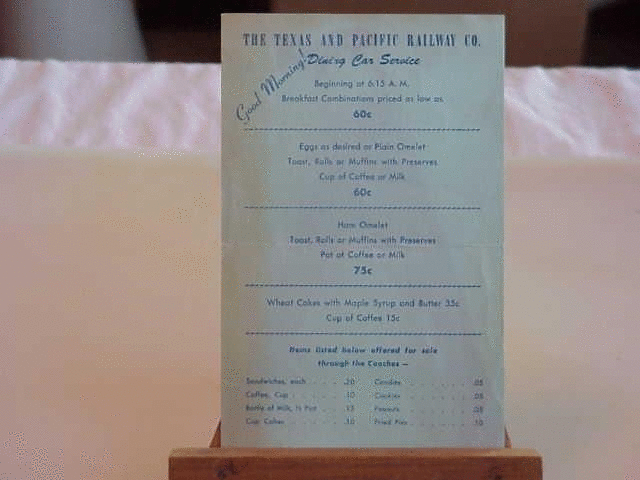 THE TEXAS AND PACIFIC RAILWAY CO.
Good Morning!
Dining Car Service
Beginning at 6:15 A. M.
Breakfast Combinations priced as low as
60c
Eggs as desired or Plain Omelet
Toast, Rolls or Muffins with Preserves
Cup of Coffee or Milk
60c
Ham Omelet
Toast, Rolls or Muffins with Preserves
Pot of Coffee or Milk
75c
Wheat Cakes with Maple Syrup and Butter 35c
Cup of Coffee 15c
Items listed below offered for sale
through the Coaches —
Sandwiches, each . . . . .20 Candies . . . . . . . .05
Coffee, Cup . . . . . . .10 Cookies . . . . . . . .05
Bottle of Milk, ½ Pint . . .15 Peanuts . . . . . . . .05
Cup Cakes . . . . . . .10 Fried Pies . . . . . . . .10